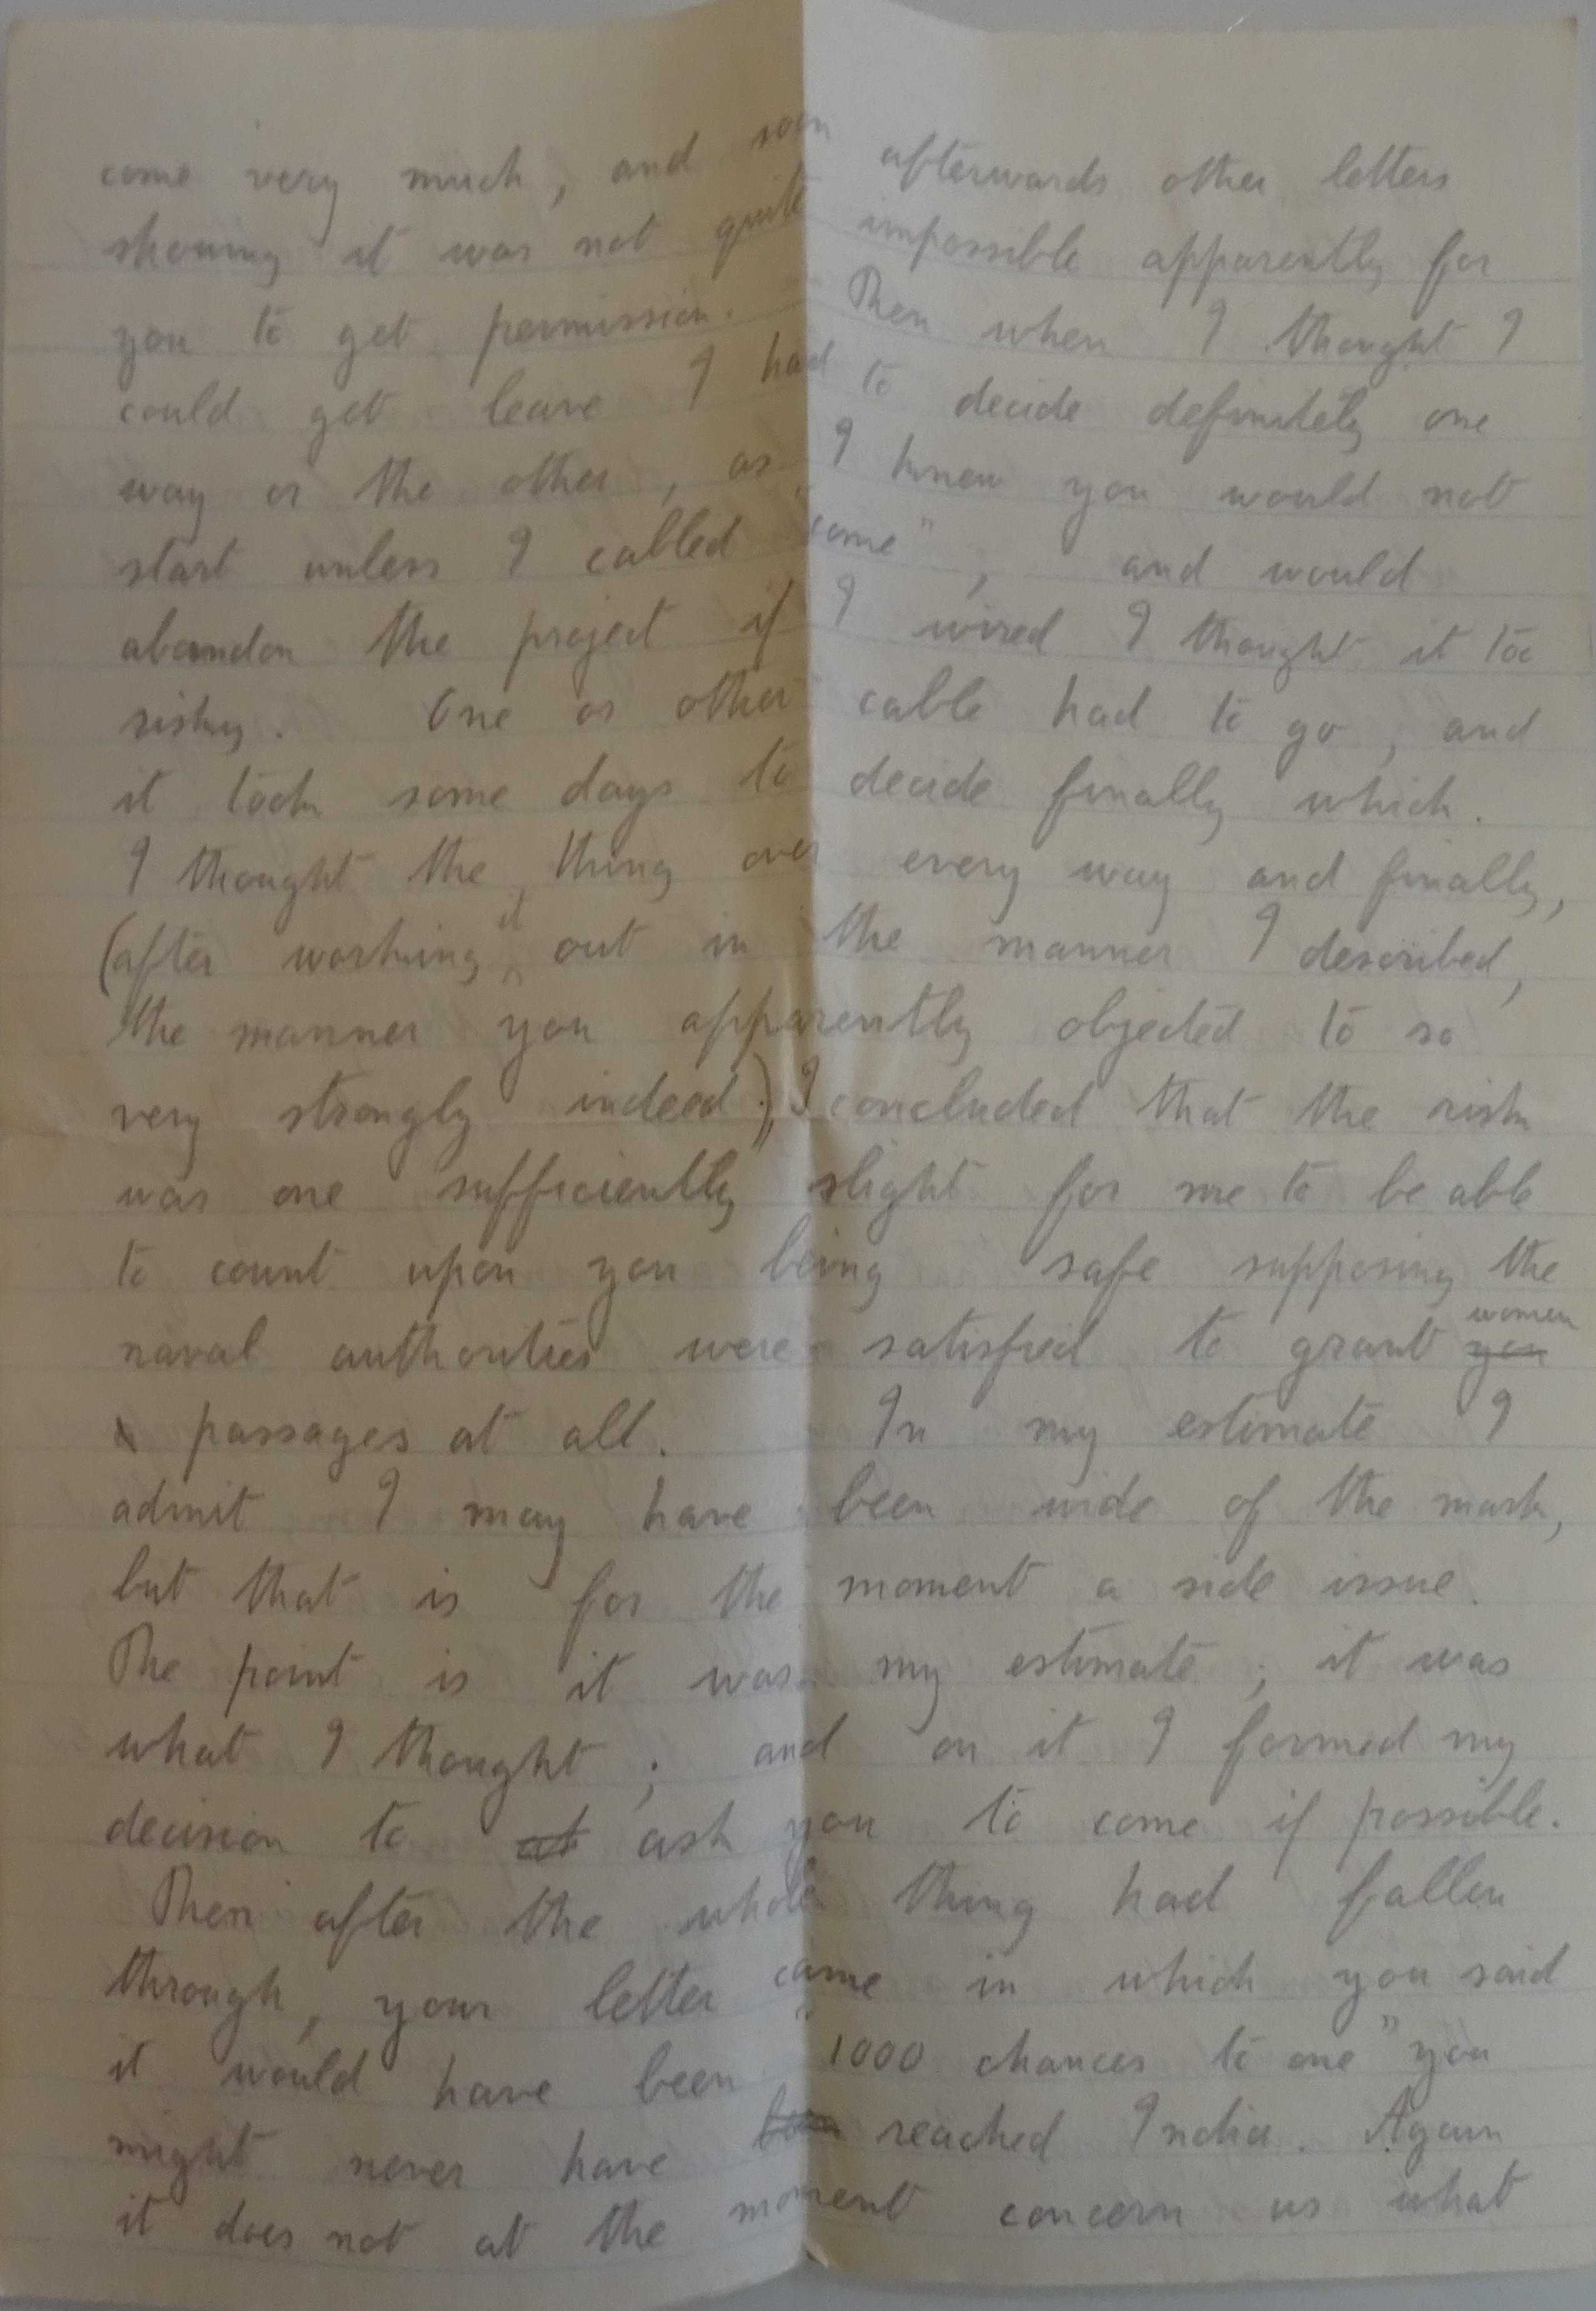 come very much, and soon afterwards other letters
showing it was not quite impossible apparently for
you to get permission. Then when I thought I
could get leave I had to decide definitely one
way or the other, as I knew you would not
start unless I cabled "come", and would
abandon the project if I wired I thought it too
risky. One or other cable had to go, and
it took some days to decide finally which.
I thought the thing over every way and finally,
(after working it out in the manner I described,
the manner you apparently objected to so
very strongly indeed), I concluded that the risk
was one sufficiently slight for me to be able
to count upon you being safe supposing the
naval authorities were satisfied to grant you women
passages at all. In my estimate I
admit I may have been wide of the mark,
but that is for the moment a side issue.
The point is it was my estimate; it was
what I thought; and on it I formed my
decision to at ask you to come if possible.
Then after the whole thing had fallen
through, your letter came in which you said
it would have been "1000 chances to one" you
might never have reached India. Again
it does not at the moment concern us what